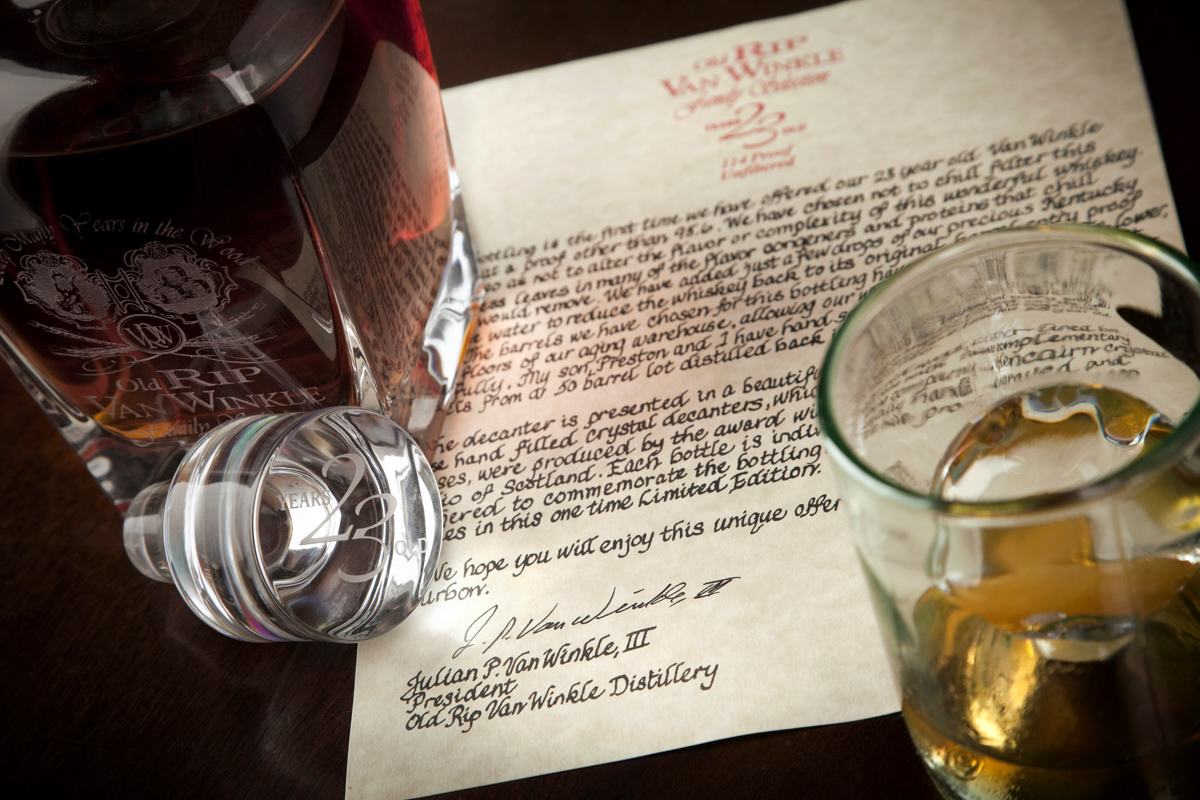 Old RIP
VAN WINKLE
Family Selection
YEARS 23 OLD
114 Proof
Unfiltered
is the first time we have offered our 23 year old Van Winkle
at a proof other than 95.6. We have chosen not to chill filter this
so as not to alter the flavor or complexity of this wonderful whiskey.
leaves in many of the flavor congeners and proteins that chill
would remove. We have added just a few drops of our precious Kentucky
water to reduce the whiskey back to its original barrel entry proof
The barrels we have chosen for this bottling
floors of our aging warehouse, allowing our
My son, Preston and I have hand
from a 50 barrel lot distilled back
decanter is presented in a
hand filled crystal decanters,
were produced by the award
of Scotland. Each bottle is
to commemorate the bottling
in this one time Limited Edition.
We hope you will enjoy this unique
J. P. Van Winkle, III
Julian P. Van Winkle, III
President
Old Rip Van Winkle Distillery
Many Years in the Wood
VDW
Old RIP
VAN WINKLE
Family
YEARS 23 OLD
complementary
Glencairn crystal
and